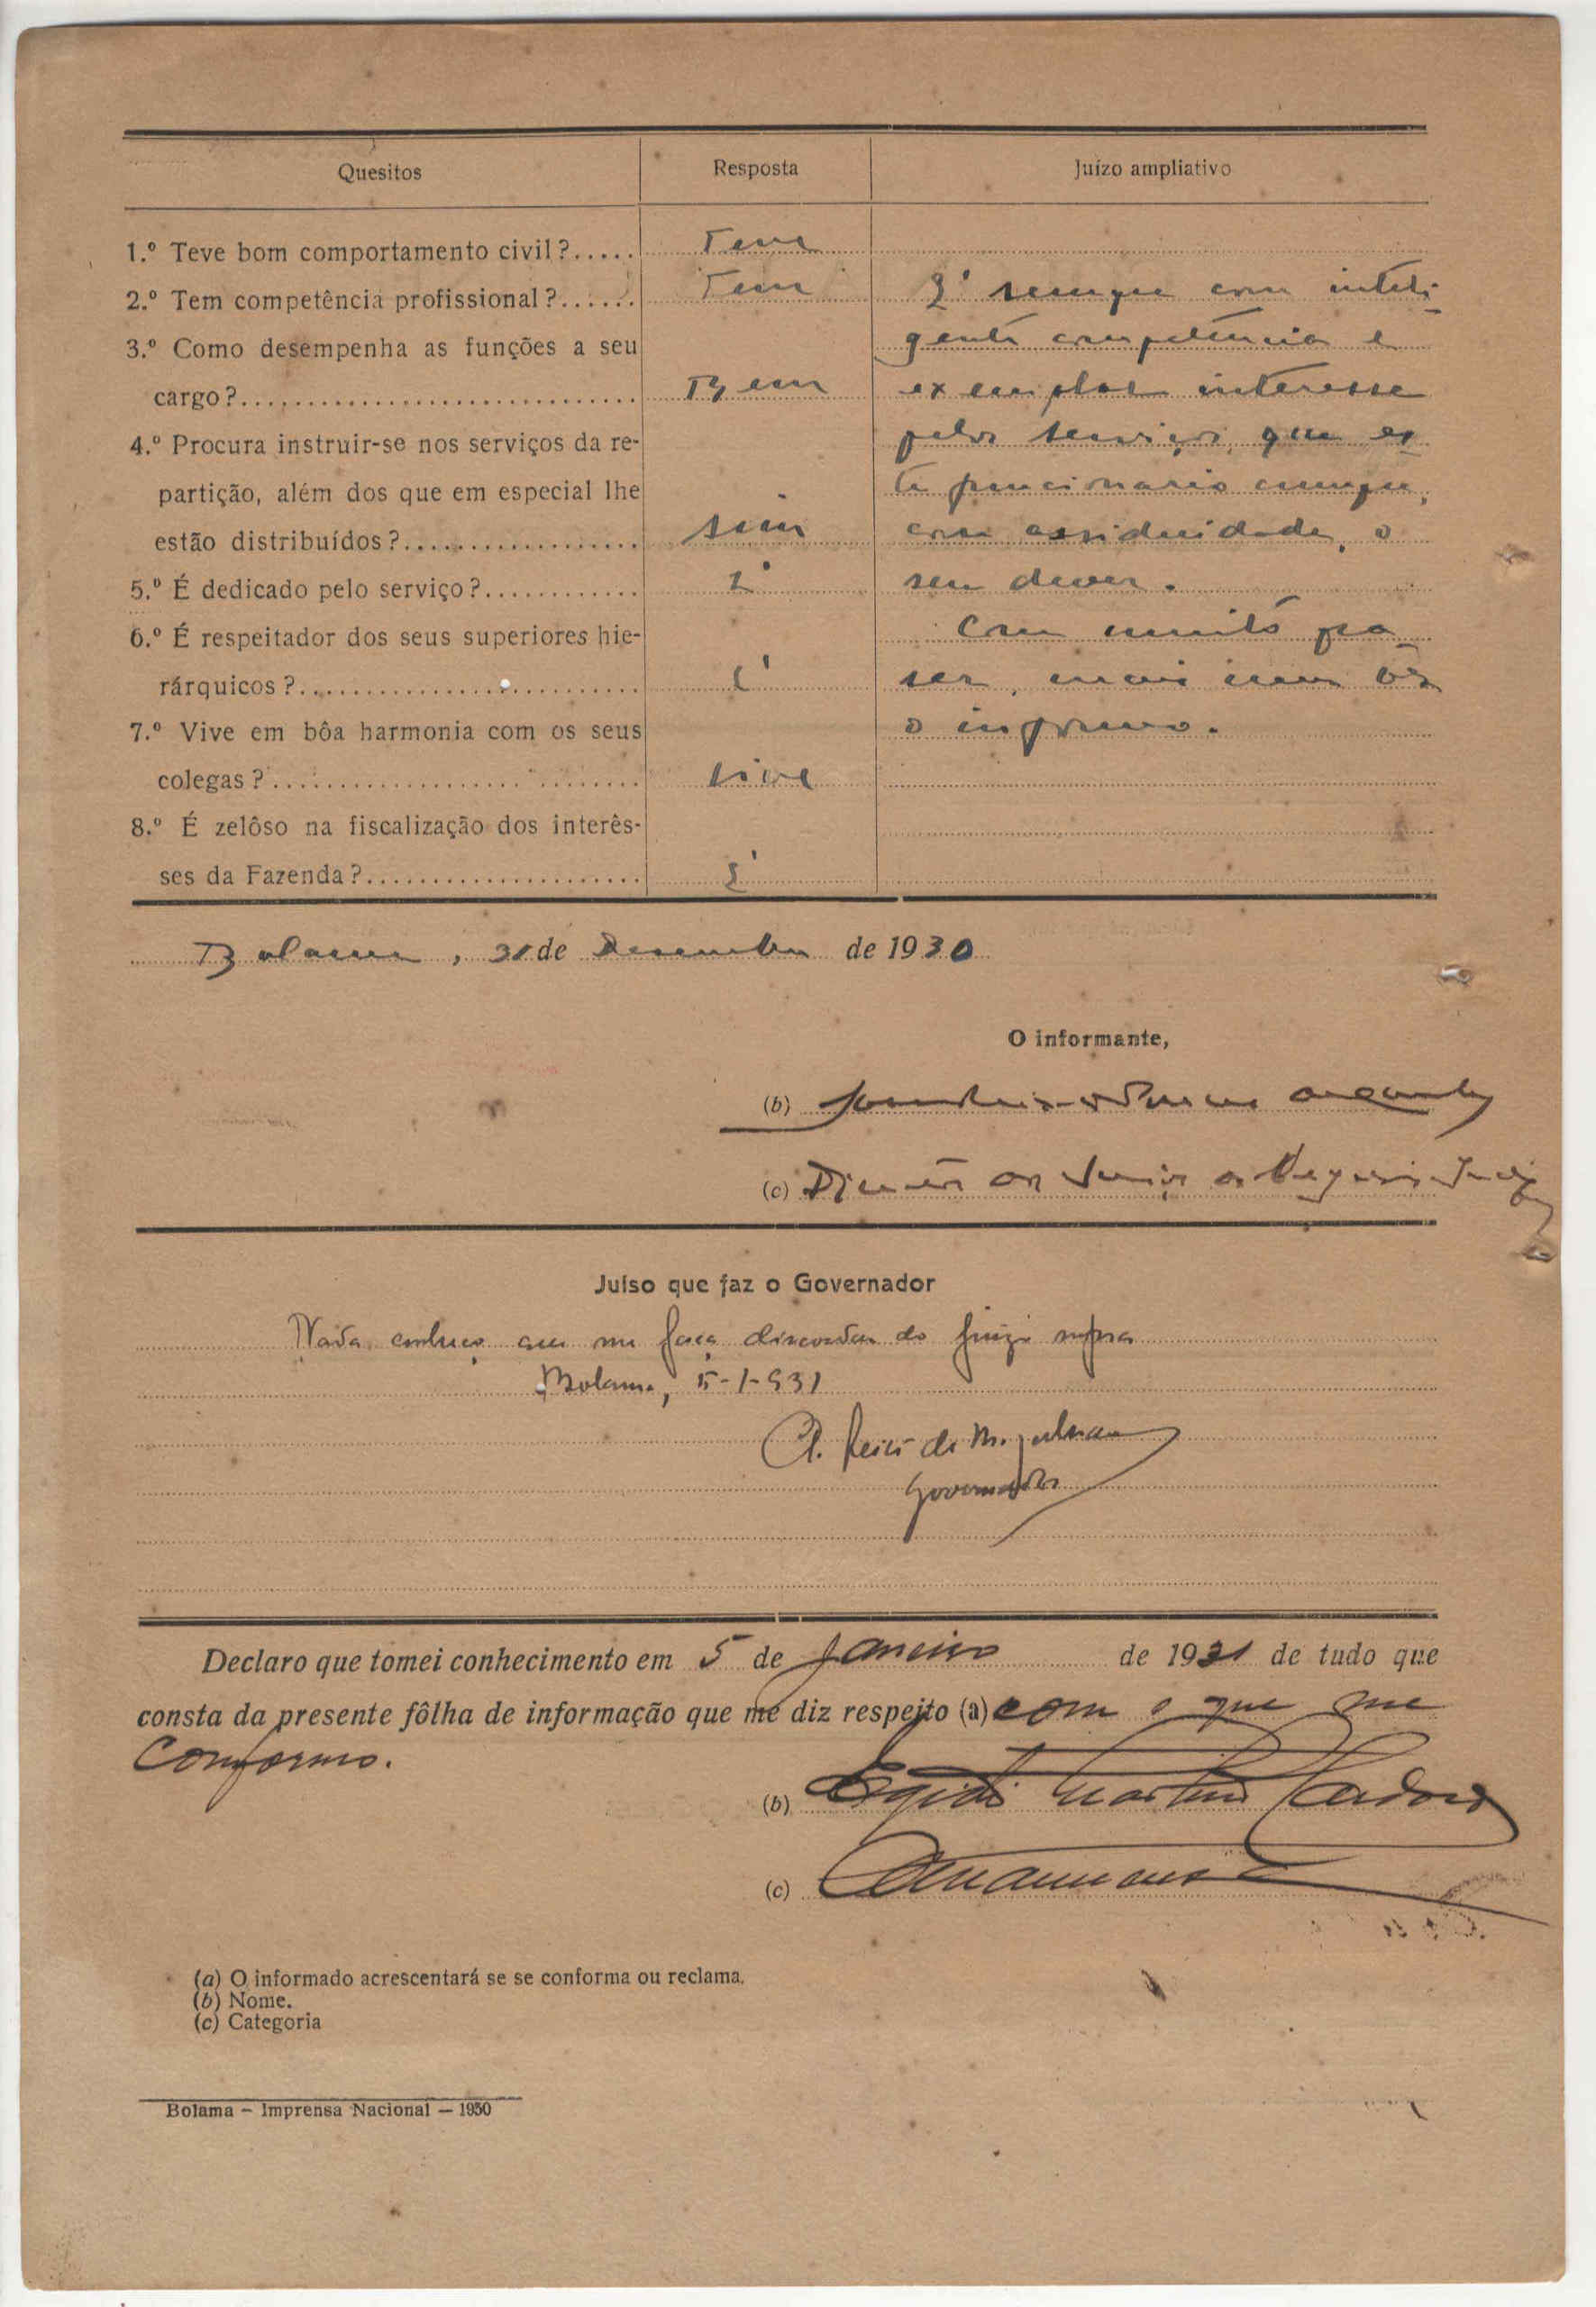 Quesitos Resposta Juízo ampliativo
1.º Teve bom comportamento civil?..... Teve
2.º Tem competência profissional?...... Tem É sempre com inteli-
3.º Como desempenha as funções a seu gente competencia e
cargo?.............................. Bem exemplar interesse
4.º Procura instruir-se nos serviços da re- pelos serviços, que es
partição, além dos que em especial lhe te funcionario cumpre,
estão distribuídos?.................. sim com assiduidade, o
5.º É dedicado pelo serviço?............ É seu dever.
6.º É respeitador dos seus superiores hie- Com muito pra
rárquicos?.......................... É ser, mais uma vez
7.º Vive em bôa harmonia com os seus o informo.
colegas?..................... vive
8.º É zelôso na fiscalização dos interês-
ses da Fazenda?..................... É
Bolama, 31 de Desembro de 1930
O informante,
(b)
(c)
Juíso que faz o Governador
Nada conheço que me faça discordar do juizo supra
Bolama, 5-1-931
Governador
Declaro que tomei conhecimento em 5 de Janeiro de 1931 de tudo que
consta da presente fôlha de informação que me diz respeito (a) com o que me
conformo.
(b) Egidio Martins Cardoso
(c) Amanuense
(a) O informado acrescentará se se conforma ou reclama.
(b) Nome.
(c) Categoria
Bolama — Imprensa Nacional — 1930